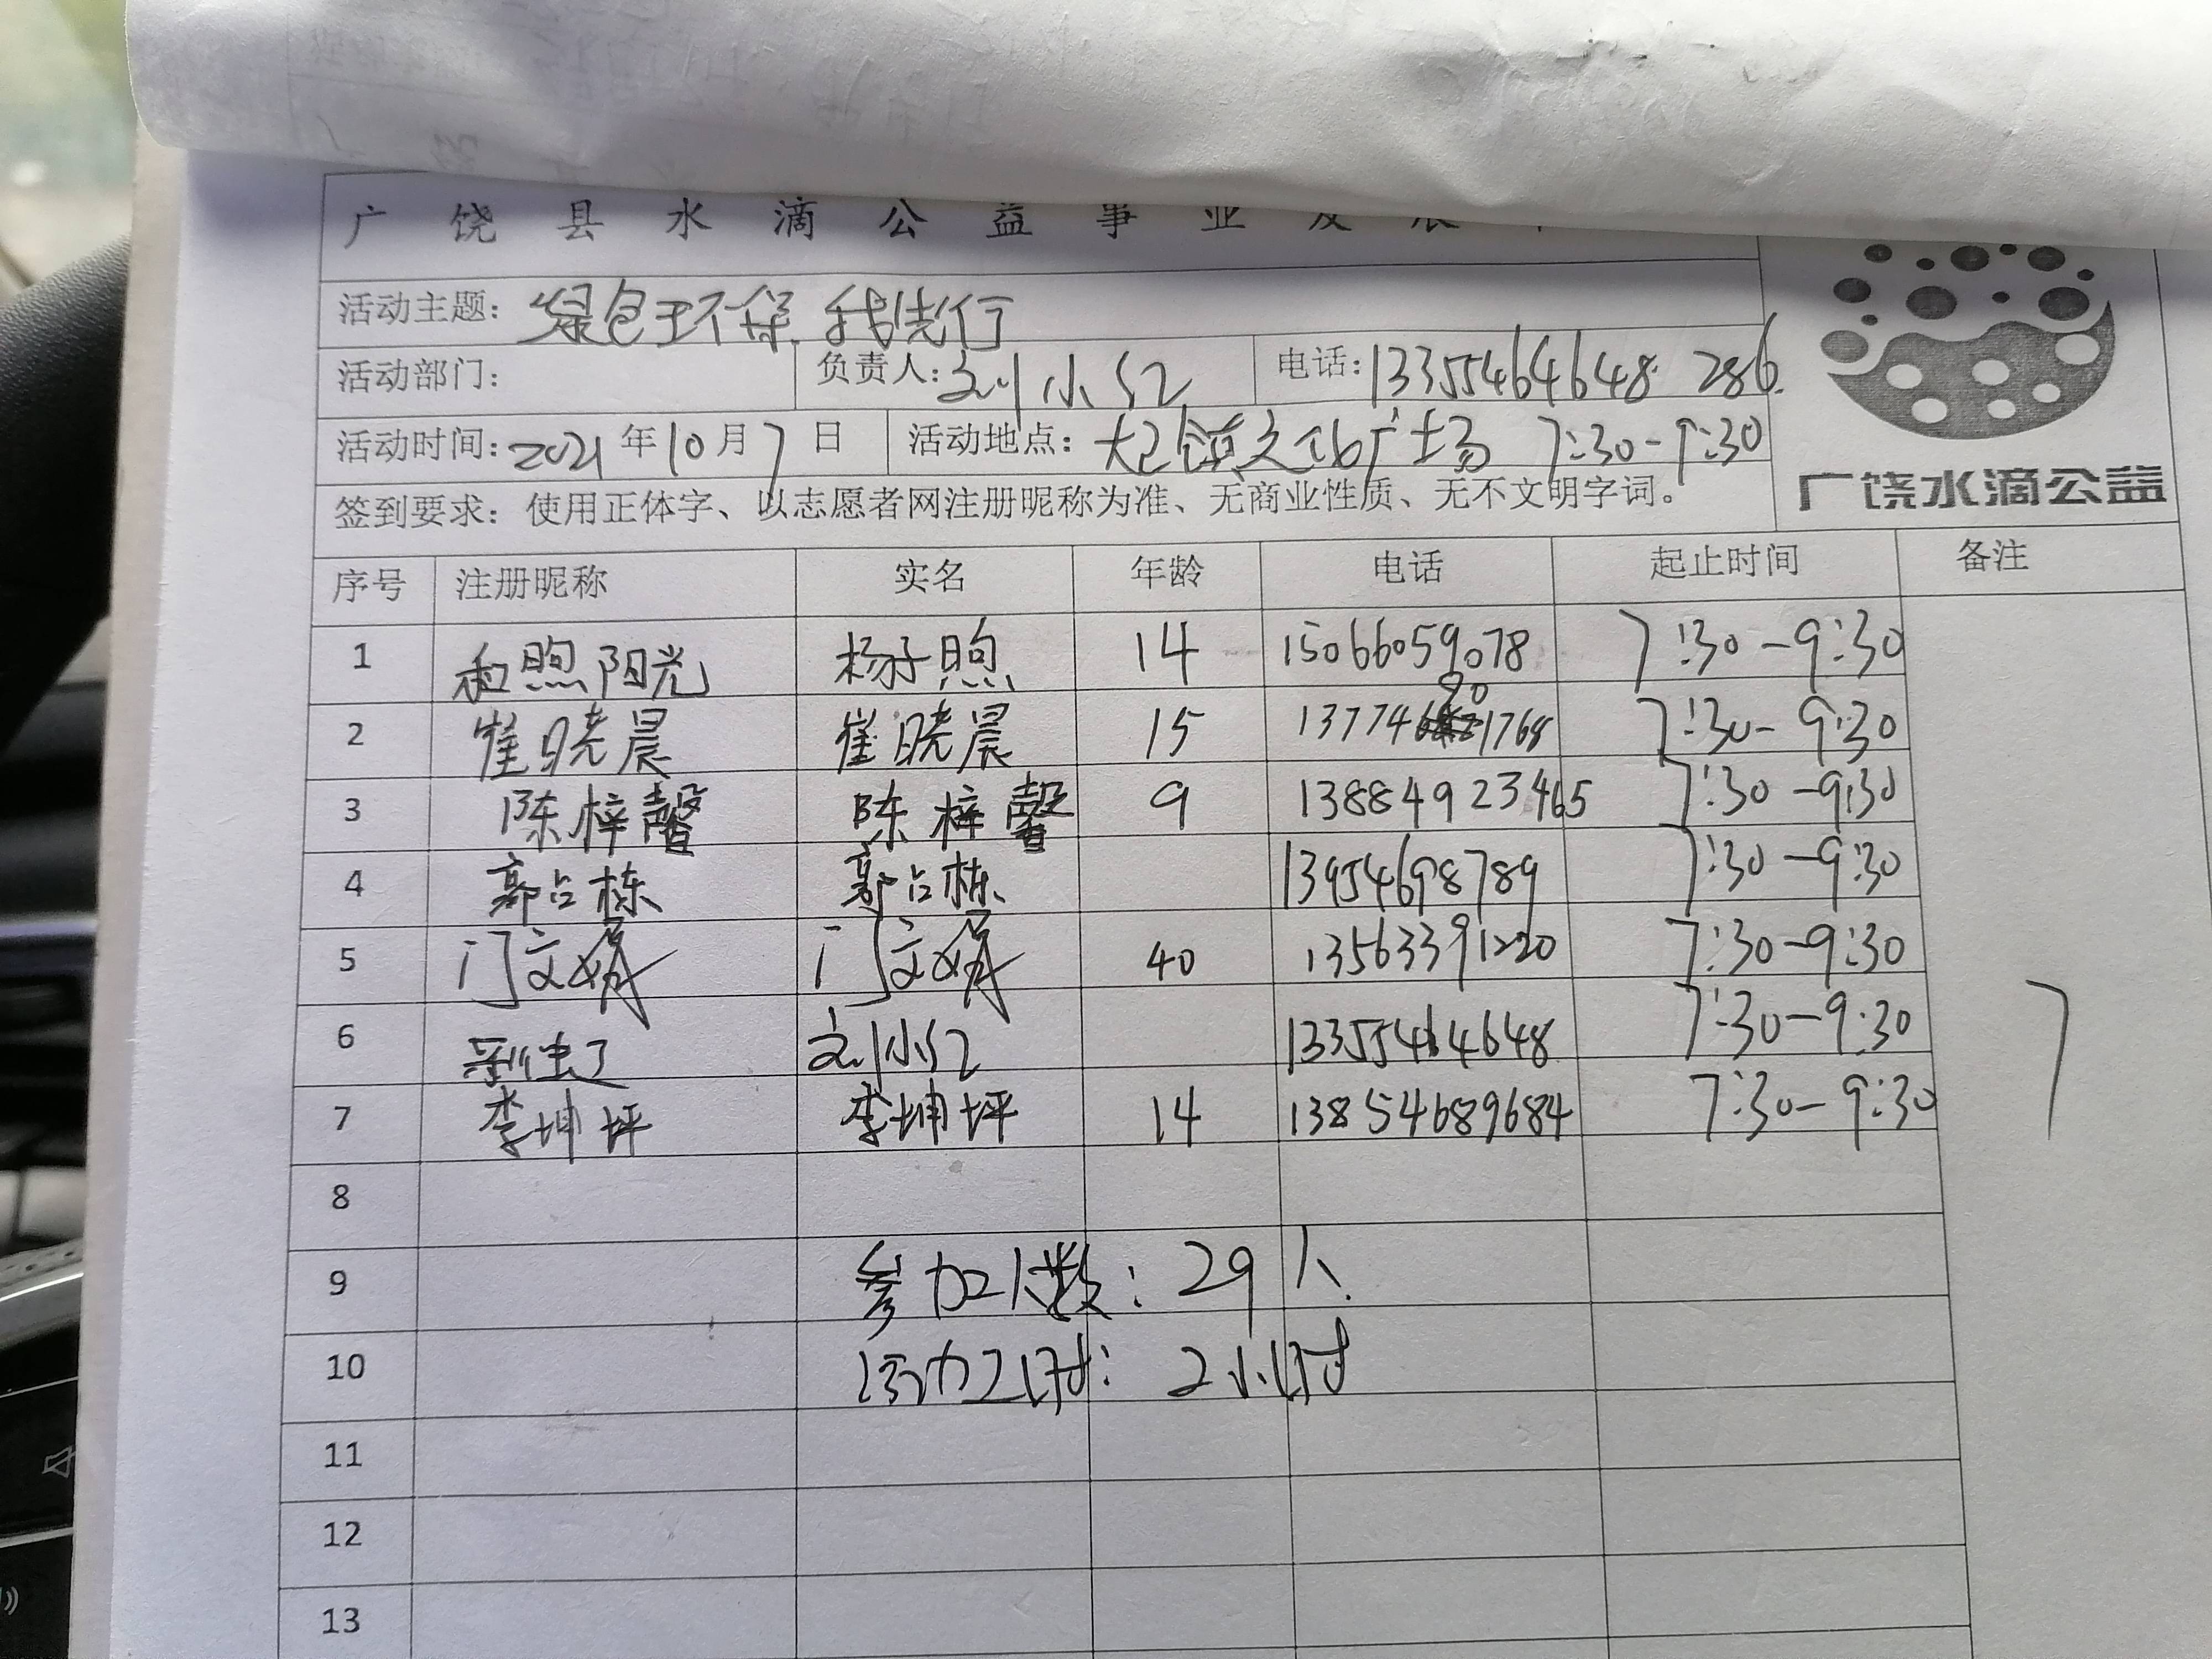 广饶县水滴公益事业发展
活动主题：绿色环保 我先行
活动部门： 负责人：刘小红 电话：13355464648 286
活动时间：2021年10月7日 活动地点：大王镇文化广场 7:30-9:30
广饶水滴公益
签到要求：使用正体字、以志愿者网注册昵称为准、无商业性质、无不文明字词。
序号 注册昵称 实名 年龄 电话 起止时间 备注
1 和煦阳光 杨子煦 14 15066059078 7:30-9:30
2 崔晓晨 崔晓晨 15 7:30-9:30
3 陈梓馨 陈梓馨 9 13884923465 7:30-9:30
4 郭占栋 郭占栋 13954698789 7:30-9:30
5 门文 门文 40 13563391220 7:30-9:30
6 刘小红 13355464648 7:30-9:30
7 李坤坪 李坤坪 14 13854689684 7:30-9:30
7
8
9 参加人数：29人
10 活动工时：2小时
11
12
13